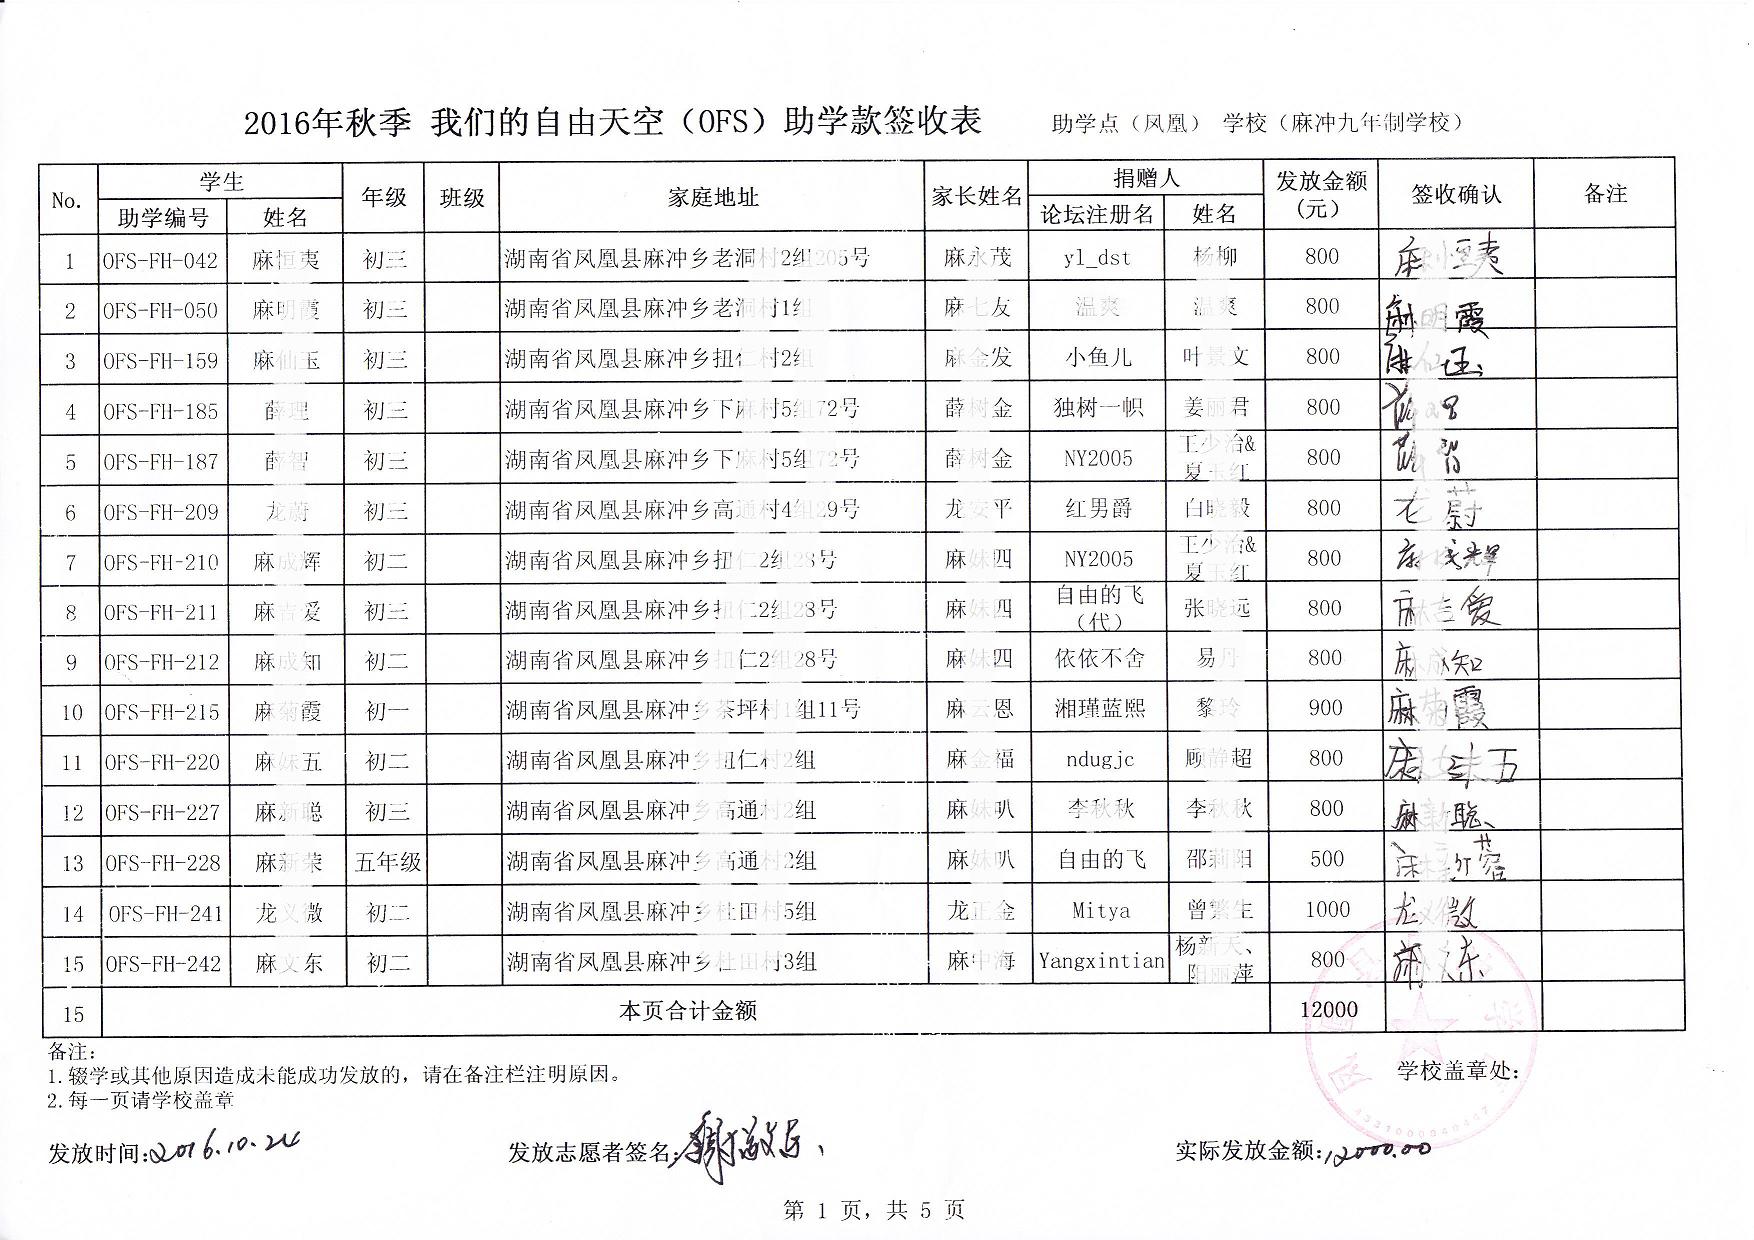 2016年秋季 我们的自由天空（OFS）助学款签收表 助学点（凤凰） 学校（麻冲九年制学校）
No. 学生 年级 班级 家庭地址 家长姓名 捐赠人 发放金额(元) 签收确认 备注
助学编号 姓名 论坛注册名 姓名
1 OFS-FH-042 麻恒夷 初三 湖南省凤凰县麻冲乡老洞村2组205号 麻永茂 yl_dst 杨柳 800 麻恒夷
2 OFS-FH-050 麻明霞 初三 湖南省凤凰县麻冲乡老洞村1组 麻七友 温爽 温爽 800 麻明霞
3 OFS-FH-159 麻仙玉 初三 湖南省凤凰县麻冲乡扭仁村2组 麻金发 小鱼儿 叶景文 800 麻仙玉
4 OFS-FH-185 薛理 初三 湖南省凤凰县麻冲乡下麻村5组72号 薛树金 独树一帜 姜丽君 800
5 OFS-FH-187 薛智 初三 湖南省凤凰县麻冲乡下麻村5组72号 薛树金 NY2005 王少治&夏玉红 800 薛智
6 OFS-FH-209 龙蔚 初三 湖南省凤凰县麻冲乡高通村4组29号 龙安平 红男爵 白晓毅 800 龙蔚
7 OFS-FH-210 麻成辉 初二 湖南省凤凰县麻冲乡扭仁2组28号 麻妹四 NY2005 王少治&夏玉红 800 麻成辉
8 OFS-FH-211 麻吉爱 初三 湖南省凤凰县麻冲乡扭仁2组28号 麻妹四 自由的飞（代） 张晓远 800 麻吉爱
9 OFS-FH-212 麻成知 初二 湖南省凤凰县麻冲乡扭仁2组28号 麻妹四 依依不舍 易丹 800 麻成知
10 OFS-FH-215 麻菊霞 初一 湖南省凤凰县麻冲乡茶坪村1组11号 麻云恩 湘瑾蓝熙 黎玲 900 麻菊霞
11 OFS-FH-220 麻妹五 初二 湖南省凤凰县麻冲乡扭仁村2组 麻金福 ndugjc 顾静超 800 麻妹五
12 OFS-FH-227 麻新聪 初三 湖南省凤凰县麻冲乡高通村2组 麻妹叭 李秋秋 李秋秋 800 麻新聪
13 OFS-FH-228 麻新荣 五年级 湖南省凤凰县麻冲乡高通村2组 麻妹叭 自由的飞 邵莉阳 500
14 OFS-FH-241 龙义微 初二 湖南省凤凰县麻冲乡杜田村5组 龙正金 Mitya 曾繁生 1000 龙义微
15 OFS-FH-242 麻文东 初二 湖南省凤凰县麻冲乡杜田村3组 麻中海 Yangxintian 杨新天、阳丽萍 800 麻文东
15 本页合计金额 12000
备注：
1.辍学或其他原因造成未能成功发放的，请在备注栏注明原因。 学校盖章处：
2.每一页请学校盖章
发放时间:2016.10.24 发放志愿者签名: 实际发放金额:12000.00
第 1 页，共 5 页